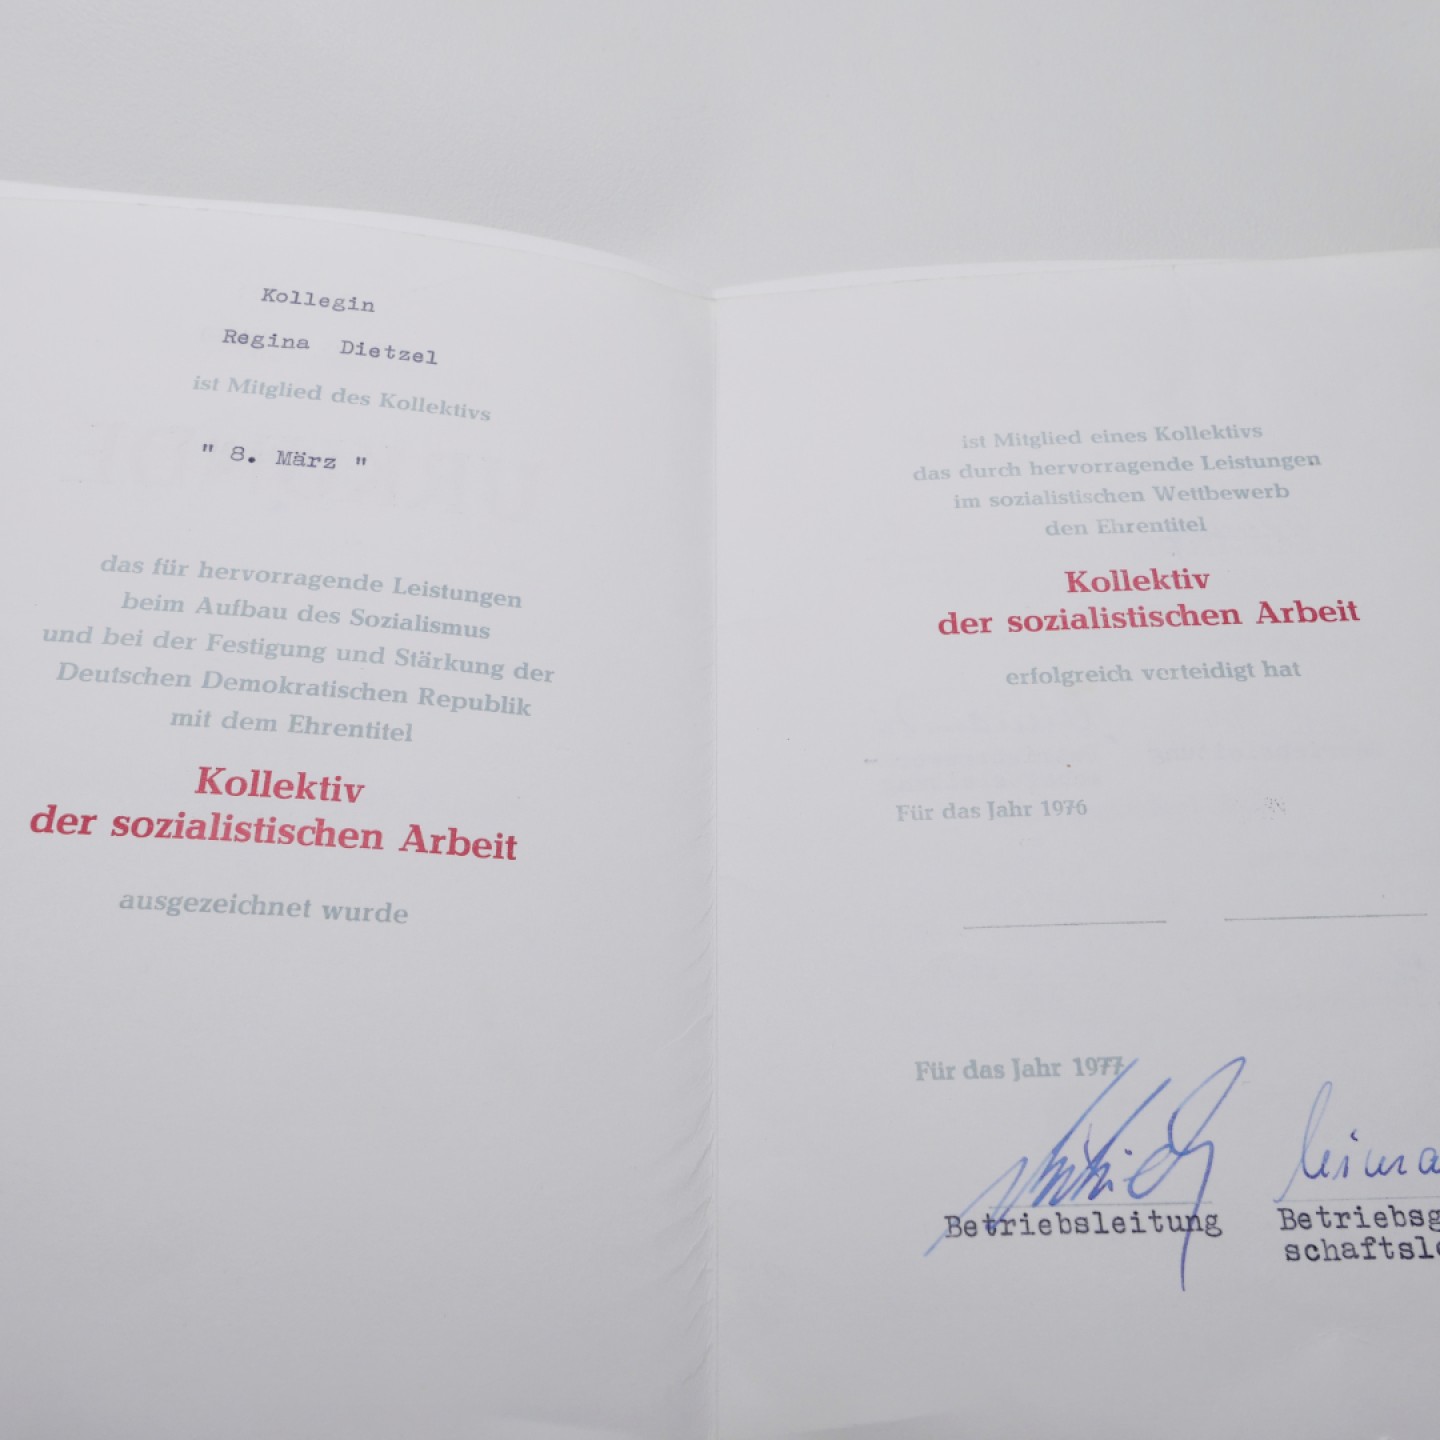 Kollegin
Regina Dietzel
ist Mitglied des Kollektivs
" 8. März "
das für hervorragende Leistungen
beim Aufbau des Sozialismus
und bei der Festigung und Stärkung der
Deutschen Demokratischen Republik
mit dem Ehrentitel
Kollektiv
der sozialistischen Arbeit
ausgezeichnet wurde
ist Mitglied eines Kollektivs
das durch hervorragende Leistungen
im sozialistischen Wettbewerb
den Ehrentitel
Kollektiv
der sozialistischen Arbeit
erfolgreich verteidigt hat
Für das Jahr 1976
Für das Jahr 1977
Betriebsleitung
Betriebsg
schaftsl